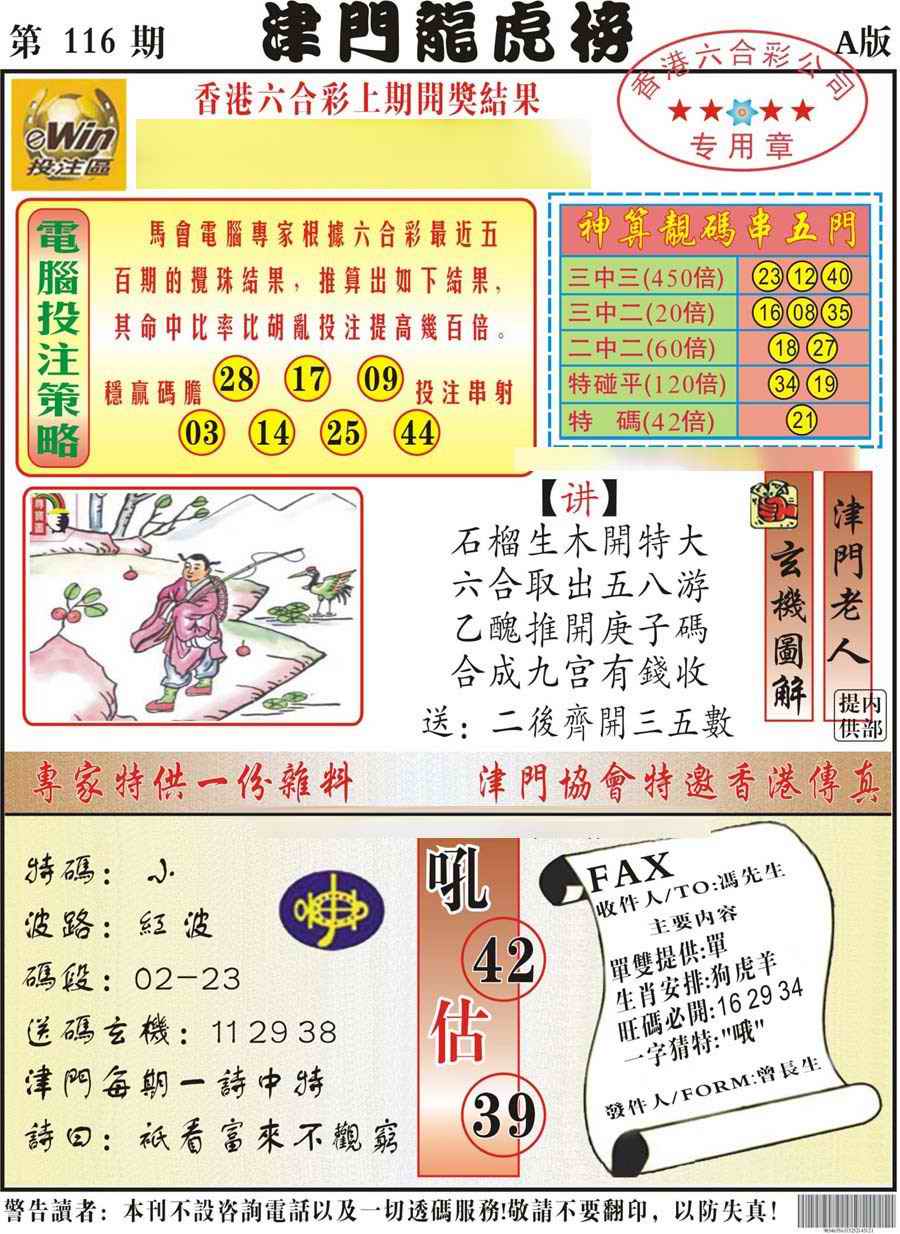 第 116 期
津門龍虎榜
A版
香港六合彩上期開獎結果
eWin
投注區
香港六合彩公司
专用章
電腦投注策略
馬會電腦專家根據六合彩最近五
百期的攪珠結果，推算出如下結果，
其命中比率比胡亂投注提高幾百倍。
穩贏碼膽 28 17 09 投注串射
03 14 25 44
神算靚碼串五門
三中三(450倍) 23 12 40
三中二(20倍) 16 08 35
二中二(60倍) 18 27
特碰平(120倍) 34 19
特 碼(42倍) 21
【讲】
石榴生木開特大
六合取出五八游
乙醜推開庚子碼
合成九宫有錢收
送：二後齊開三五數
玄機圖解
津門老人
内部提供
專家特供一份雜料
津門協會特邀香港傳真
特碼：小
波路：紅波
碼段：02-23
送碼玄機：11 29 38
津門每期一詩中特
詩曰：祇看富來不觀窮
吼
42
估
39
FAX
收件人/TO:馮先生
主要内容
單雙提供:單
生肖安排:狗虎羊
旺碼必開:16 29 34
一字猜特:"哦"
發件人/FORM:曾長生
警告讀者：本刊不設咨詢電話以及一切透碼服務!敬請不要翻印，以防失真!